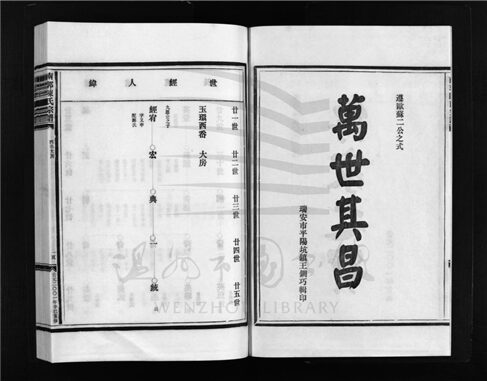 遵歐蘇二公之式
萬世其昌
瑞安市平陽坑鎮王釧巧輯印
世經人緯
廿一世 廿二世 廿三世 廿四世 廿五世
玉環西番 大房
經宥 宏 典 一 統
溫州市圖書館
WENZHOU LIBRARY